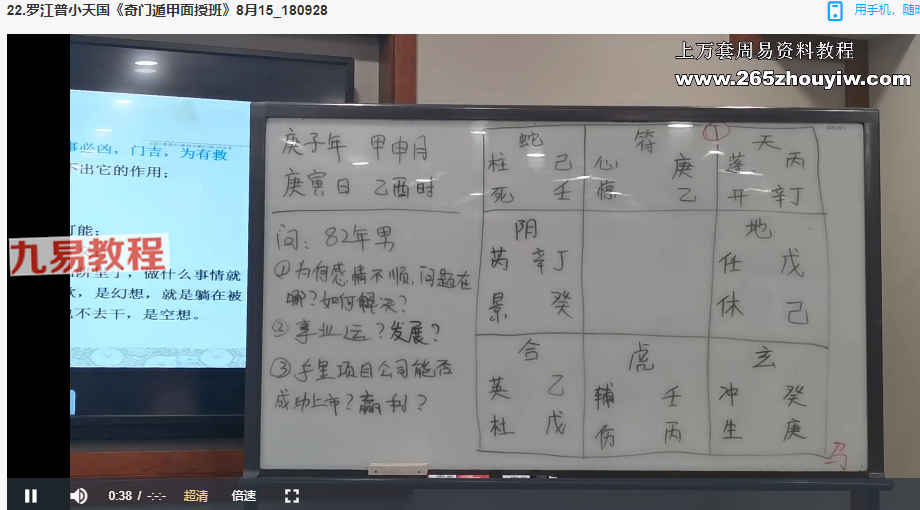 22.罗江普小天国《奇门遁甲面授班》8月15_180928
用手机，随时
上万套周易资料教程
www.265zhouyiw.com
必凶，门吉，为有救
不出它的作用；
可能；
九易教程
做什么事情就
，是幻想，就是躺在被
不去干，是空想。
庚子年 甲申月
庚寅日 乙酉时
问：82年男
①为何感情不顺，问题在
哪？如何解决？
②事业运？发展？
③手里项目公司能否
成功上市？赢利？
蛇 符 ① 天
柱 己 心 庚 蓬 丙
死 壬 惊 乙 开 辛丁
阴 地
芮 辛丁 任 戊
景 癸 休 己
合 虎 玄
英 乙 辅 壬 冲 癸
杜 戊 伤 丙 生 庚
马
0:38 / -:-:- 超清 倍速